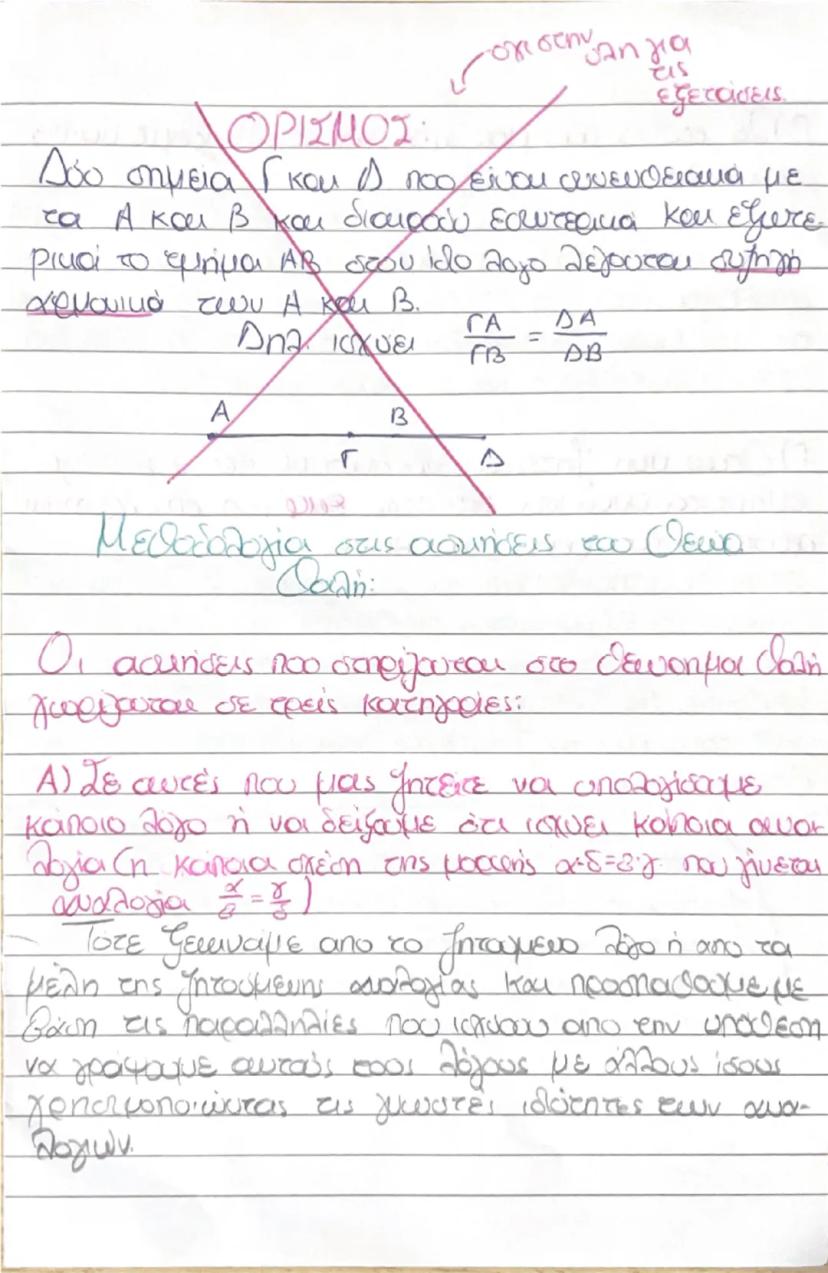 όχι στην ύλη για
τις
εξετάσεις.
ΟΡΙΣΜΟΣ:
Δύο σημεία Γ και Δ που είναι συνευθειακά με
τα Α και Β και διαιρούν εσωτερικά και εξωτε-
ρικά το τμήμα ΑΒ στον ίδιο λόγο λέγονται συζυγή
αρμονικά των Α και Β.
Δηλ. ισχύει ΓΑ/ΓΒ = ΔΑ/ΔΒ
Α Β
Γ Δ
Μεθοδολογία στις ασκήσεις του Θεωρ
Θαλή:
Οι ασκήσεις που στηρίζονται στο θεώρημα Θαλή
χωρίζονται σε τρείς κατηγορίες:
Α) Σε αυτές που μας ζητείτε να υπολογίσουμε
κάποιο λόγο ή να δείξουμε ότι ισχύει κάποια ανα-
λογία (η κάποια σχέση της μορφής α·δ=β·γ που γίνεται
αναλογία α/β = γ/δ)
Τότε ξεκινάμε απο το ζητούμενο λόγο ή απο τα
μέλη της ζητούμενης αναλογίας και προσπαθούμε με
βάση τις παραλληλίες που ισχύουν απο την υπόθεση
να γράψουμε αυτούς τους λόγους με άλλους ίσους
χρησιμοποιώντας τις γνωστές ιδιότητες των ανα-
λογιών.